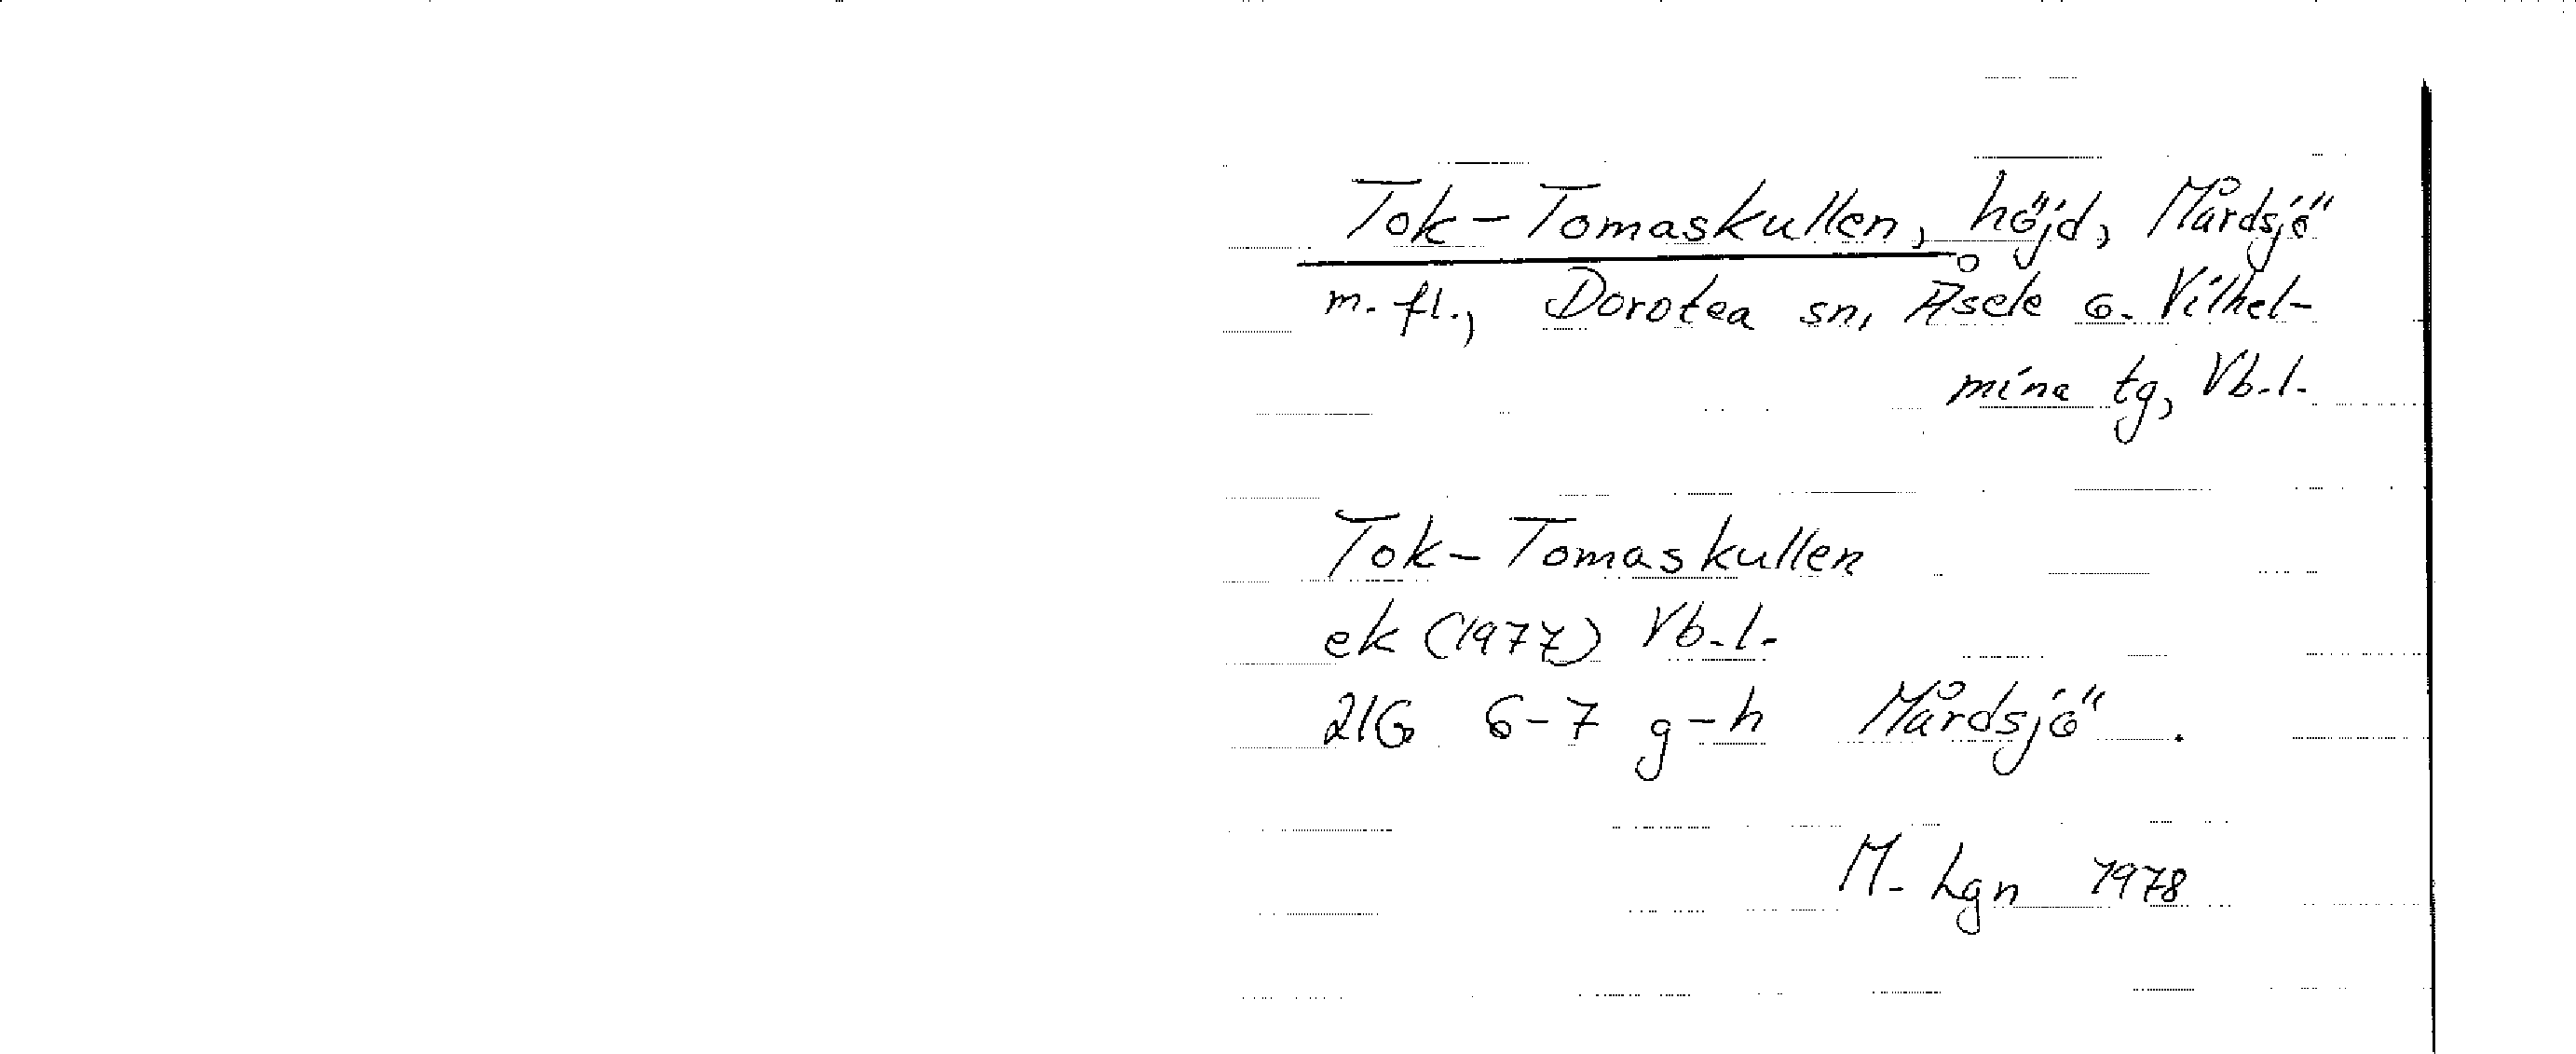 Tok-Tomaskullen, höjd, Mårdsjö
m. fl., Dorotea sn, Åsele o. Vilhel-
mina tg, Vb.l.
Tok-Tomaskullen
ek (1977) Vb.l.
21G 6-7 g-h Mårdsjö.
M. Lgn 1978